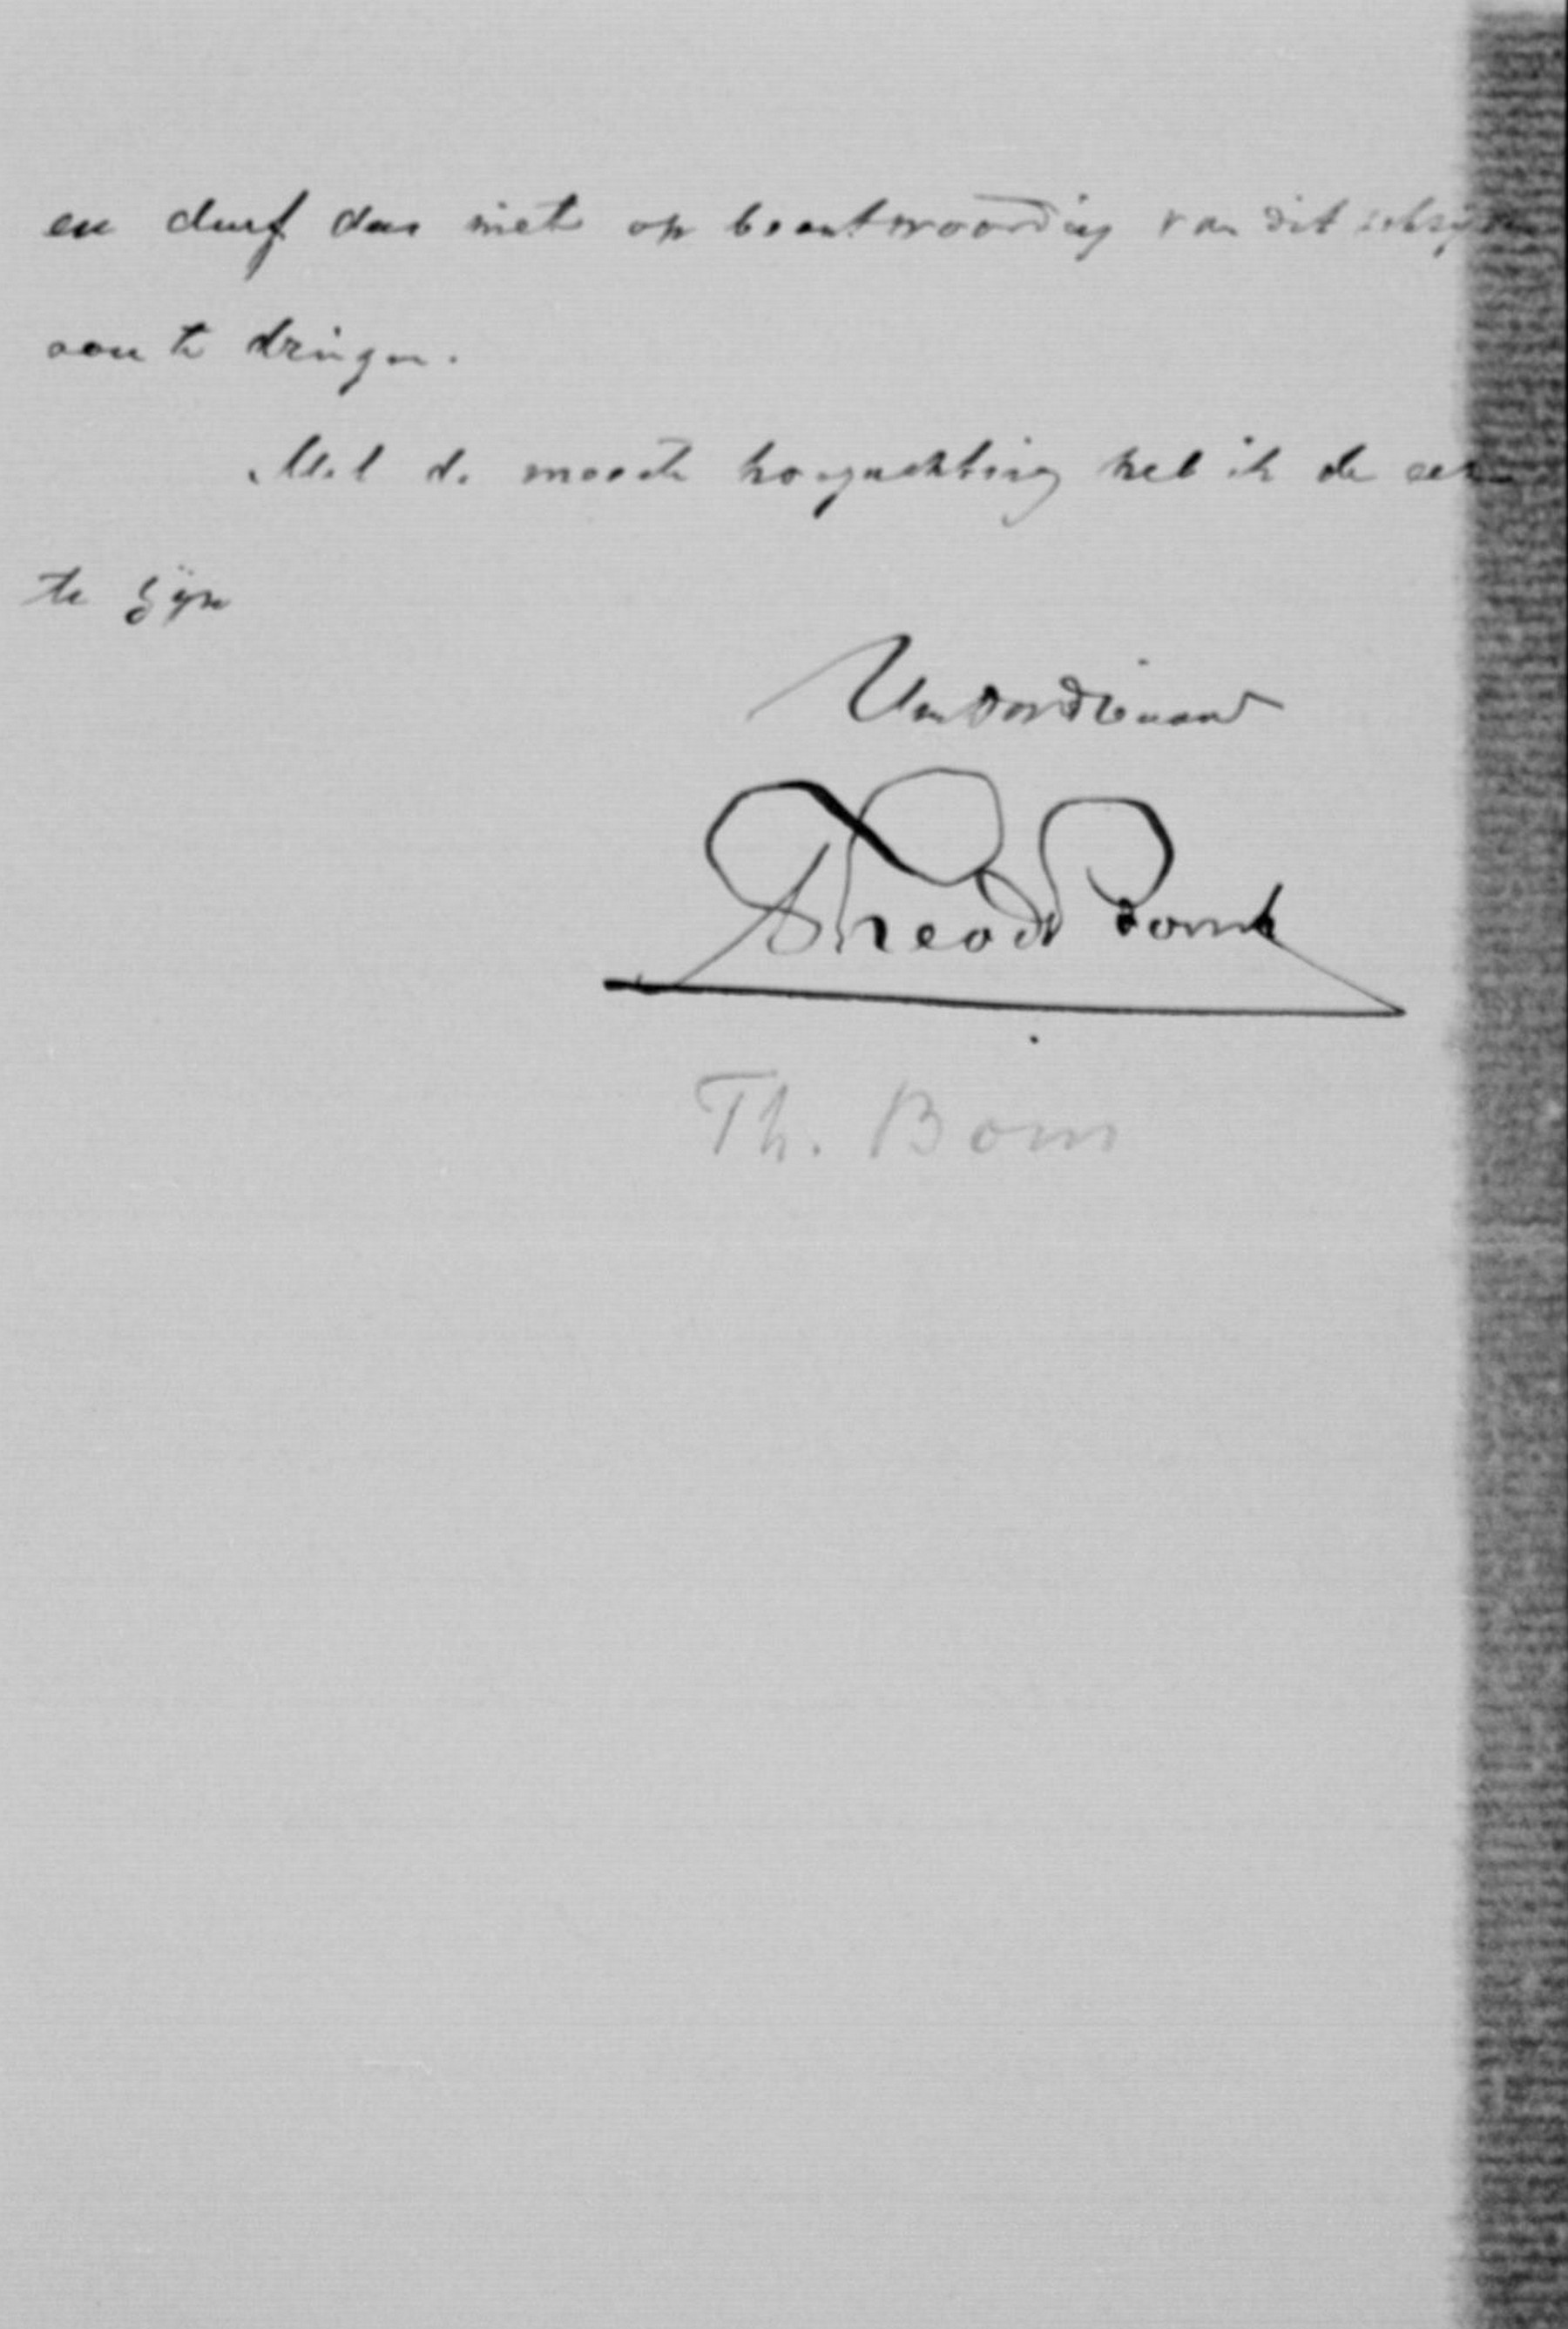 en durf dus niet op beantwoording van dit schrijven
aan te dringen.
Met de meeste hoogachting heb ik de eer
te zijn
Uw dw dienaar
Theod Bom
Th. Bom